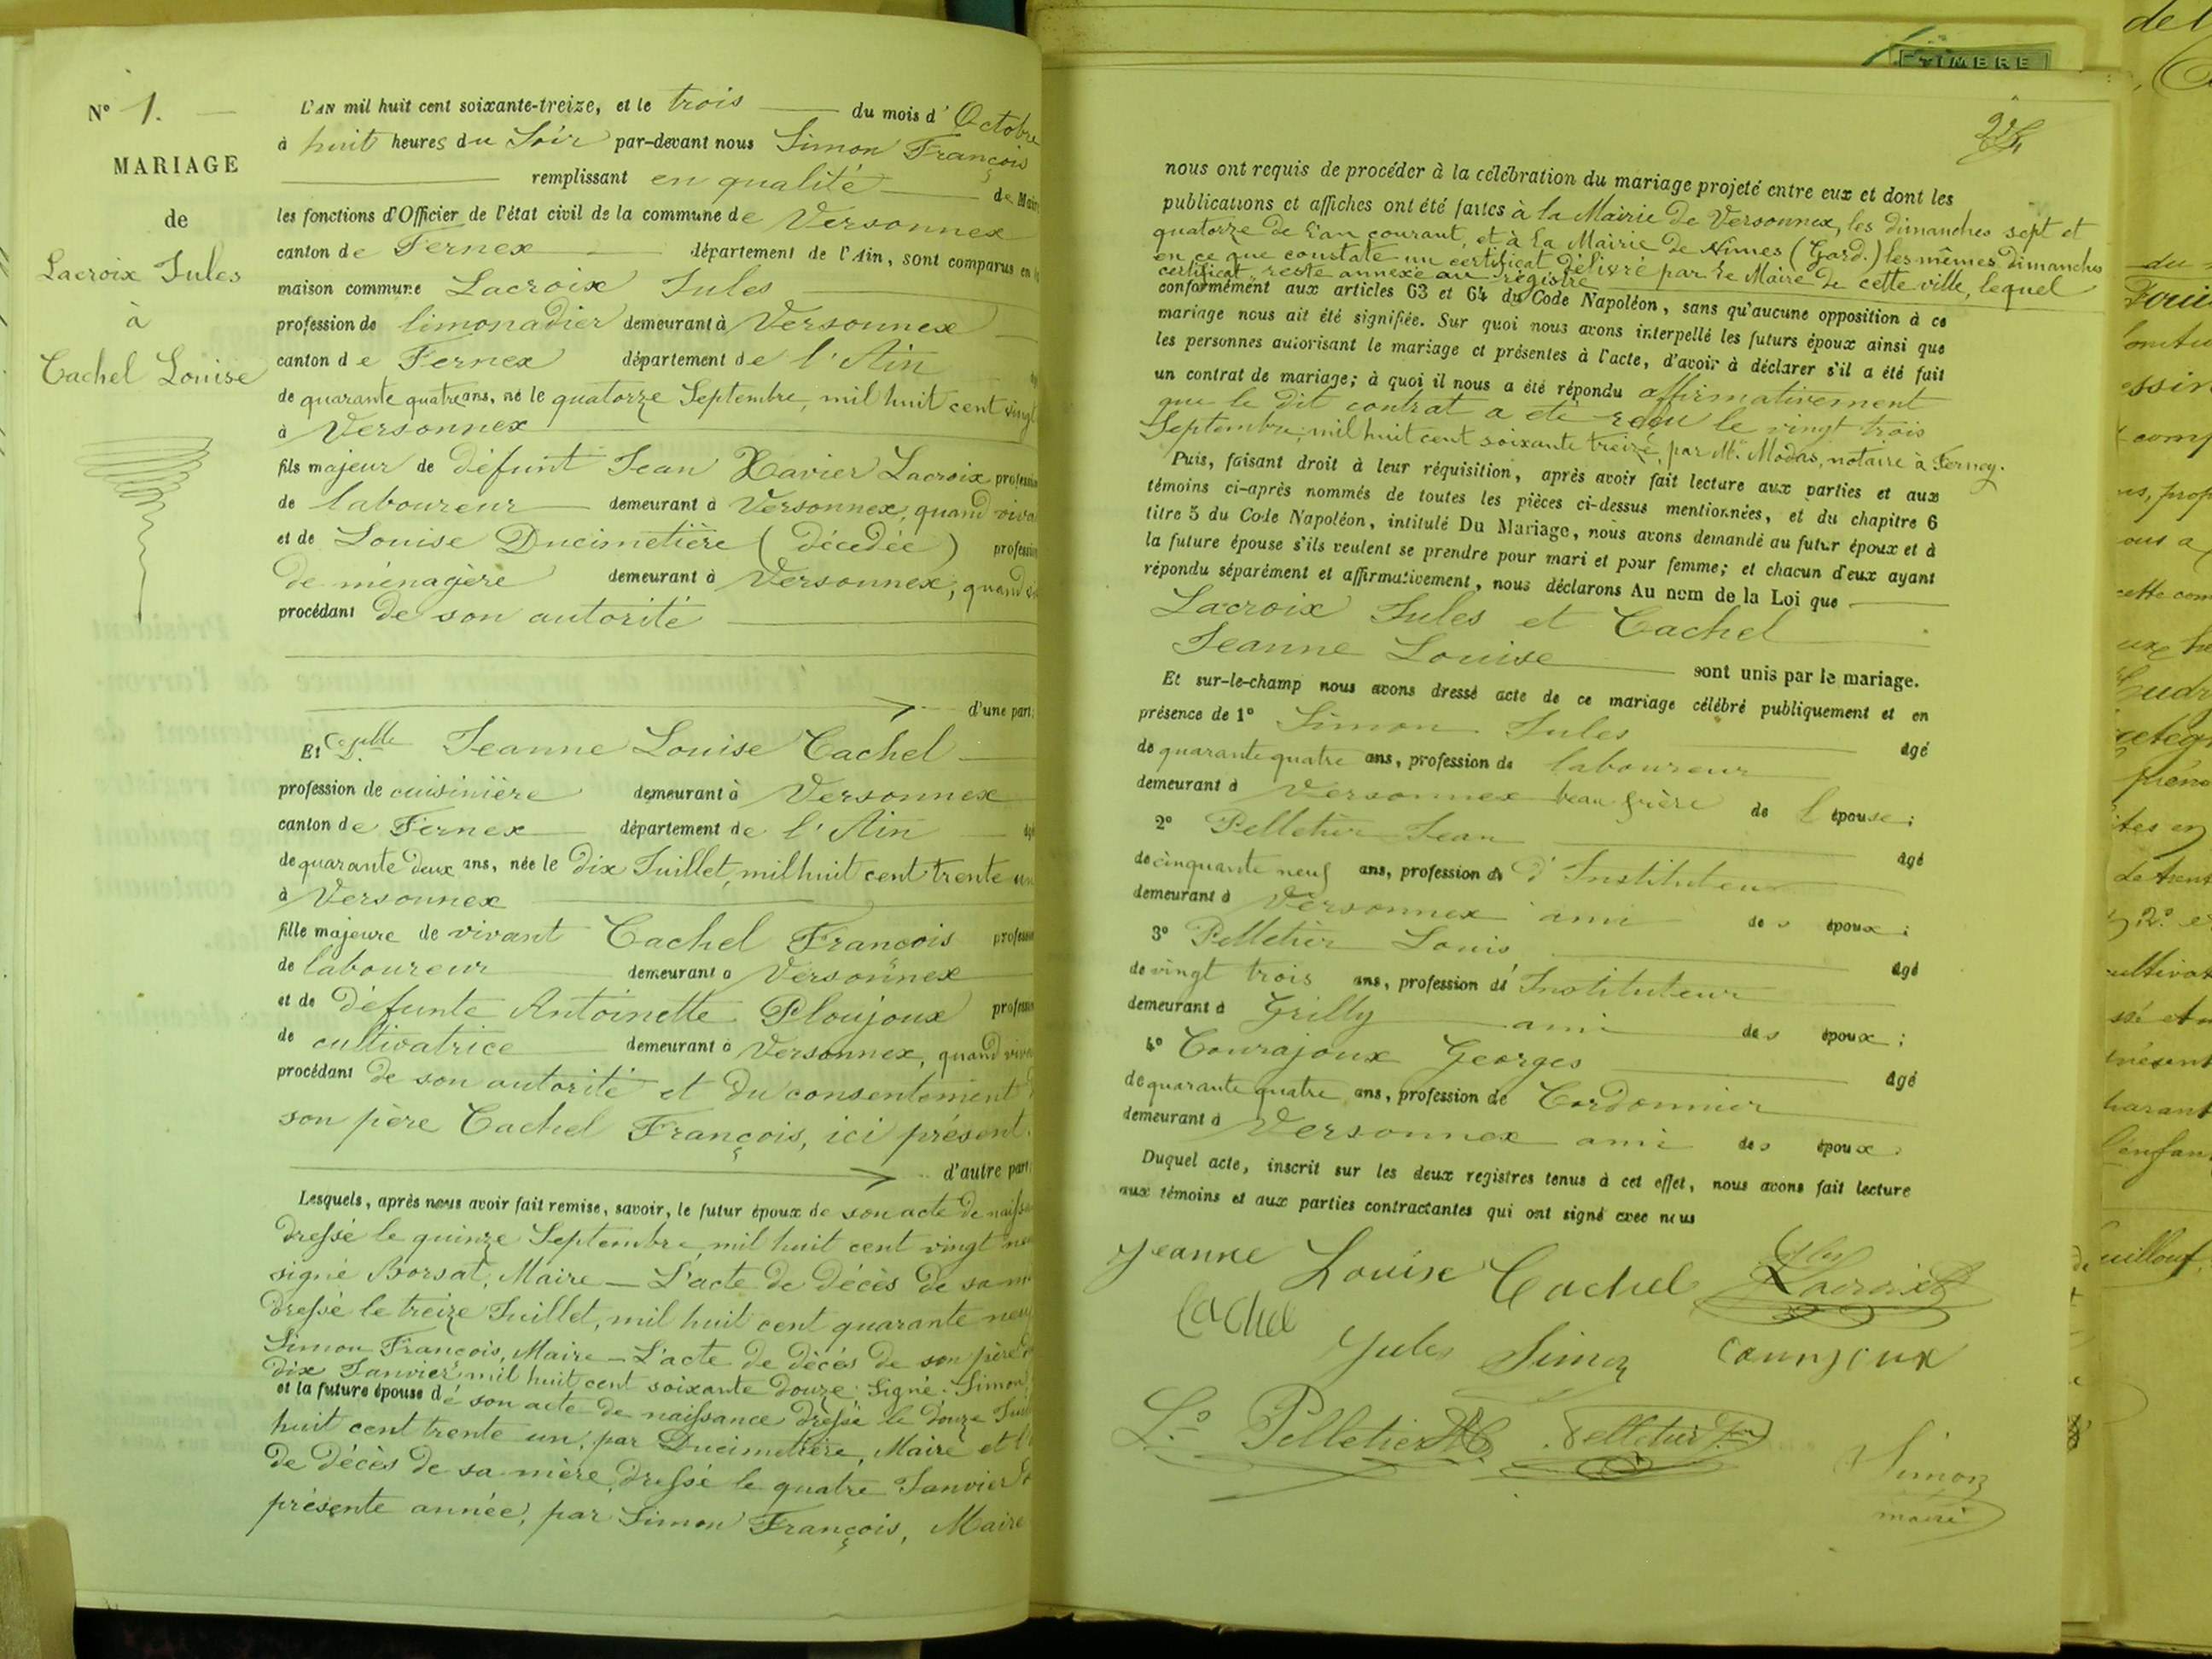 N° 1.
MARIAGE
de
Lacroix Jules
à
Cachel Louise
L'AN mil huit cent soixante-treize, et le trois du mois d' Octobre
à huit heures du Soir par-devant nous Simon François
remplissant en qualité de Maire
les fonctions d'Officier de l'état civil de la commune de Versonnex
canton de Fernex département de l'Ain, sont comparus en la
maison commune Lacroix Jules
profession de limonadier demeurant à Versonnex
canton de Fernex département de l'Ain
de quarante quatre ans, né le quatorze Septembre, mil huit cent vingt
à Versonnex
fils majeur de défunt Jean Xavier Lacroix profession
de laboureur demeurant à Versonnex, quand viva
et de Louise Ducimetière (décédée) profession
de ménagère demeurant à Versonnex, quand
procédant de son autorité
d'une part;
Et D.elle Jeanne Louise Cachel
profession de cuisinière demeurant à Versonnex
canton de Fernex département de l'Ain
de quarante deux ans, née le dix Juillet, mil huit cent trente un
à Versonnex
fille majeure de vivant Cachel François profession
de laboureur demeurant à Versonnex
et de défunte Antoinette Ploujoux profession
de cultivatrice demeurant à Versonnex, quand viva
procédant de son autorité et du consentement
son père Cachel François, ici présent.
d'autre part;
Lesquels, après nous avoir fait remise, savoir, le futur époux de son acte de naissa
dressé le quinze Septembre mil huit cent vingt
signé Borsat, Maire — L'acte de décès de sa
dressé le treize Juillet, mil huit cent quarante
Simon François, Maire — L'acte de décès de son père
dix Janvier mil huit cent soixante douze. Signé. Simon
et la future épouse de son acte de naissance dressé le douze
huit cent trente un, par Ducimetière, Maire et
de décès de sa mère dressé le quatre Janvier
présente année, par Simon François, Maire
nous ont requis de procéder à la célébration du mariage projeté entre eux et dont les
publications et affiches ont été faites à la Mairie de Versonnex, les dimanches sept et
quatorze de l'an courant, et à la Mairie de Nimes (Gard.) les mêmes dimanches
en ce que constate un certificat délivré par le Maire de cette ville, lequel
certificat reste annexé au régistre
conformément aux articles 63 et 64 du Code Napoléon, sans qu'aucune opposition à ce
mariage nous ait été signifiée. Sur quoi nous avons interpellé les futurs époux ainsi que
les personnes autorisant le mariage et présentes à l'acte, d'avoir à déclarer s'il a été fait
un contrat de mariage; à quoi il nous a été répondu affirmativement
que le dit contrat a été reçu le vingt trois
Septembre, mil huit cent soixante treize, par Me. Modas, notaire à Ferney.
Puis, faisant droit à leur réquisition, après avoir fait lecture aux parties et aux
témoins ci-après nommés de toutes les pièces ci-dessus mentionnées, et du chapitre 6
titre 5 du Code Napoléon, intitulé Du Mariage, nous avons demandé au futur époux et à
la future épouse s'ils veulent se prendre pour mari et pour femme; et chacun d'eux ayant
répondu séparément et affirmativement, nous déclarons Au nom de la Loi que
Lacroix Jules et Cachel
Jeanne Louise sont unis par le mariage.
Et sur-le-champ nous avons dressé acte de ce mariage célébré publiquement et en
présence de 1° Simon Jules âgé
de quarante quatre ans, profession de laboureur
demeurant à Versonnex beau frère de l'épouse;
2° Pelletier Jean âgé
de cinquante neuf ans, profession d'Instituteur
demeurant à Versonnex ami des époux;
3° Pelletier Louis âgé
de vingt trois ans, profession d'Instituteur
demeurant à Grilly ami des époux;
4° Courajoux Georges âgé
de quarante quatre ans, profession de Cordonnier
demeurant à Versonnex ami des époux.
Duquel acte, inscrit sur les deux registres tenus à cet effet, nous avons fait lecture
aux témoins et aux parties contractantes qui ont signé avec nous
Jeanne Louise Cachel Jles Lacroix
Cachel
Jules Simon
Ls Pelletier Pelletier Jean
Simon
maire
TIMBRE